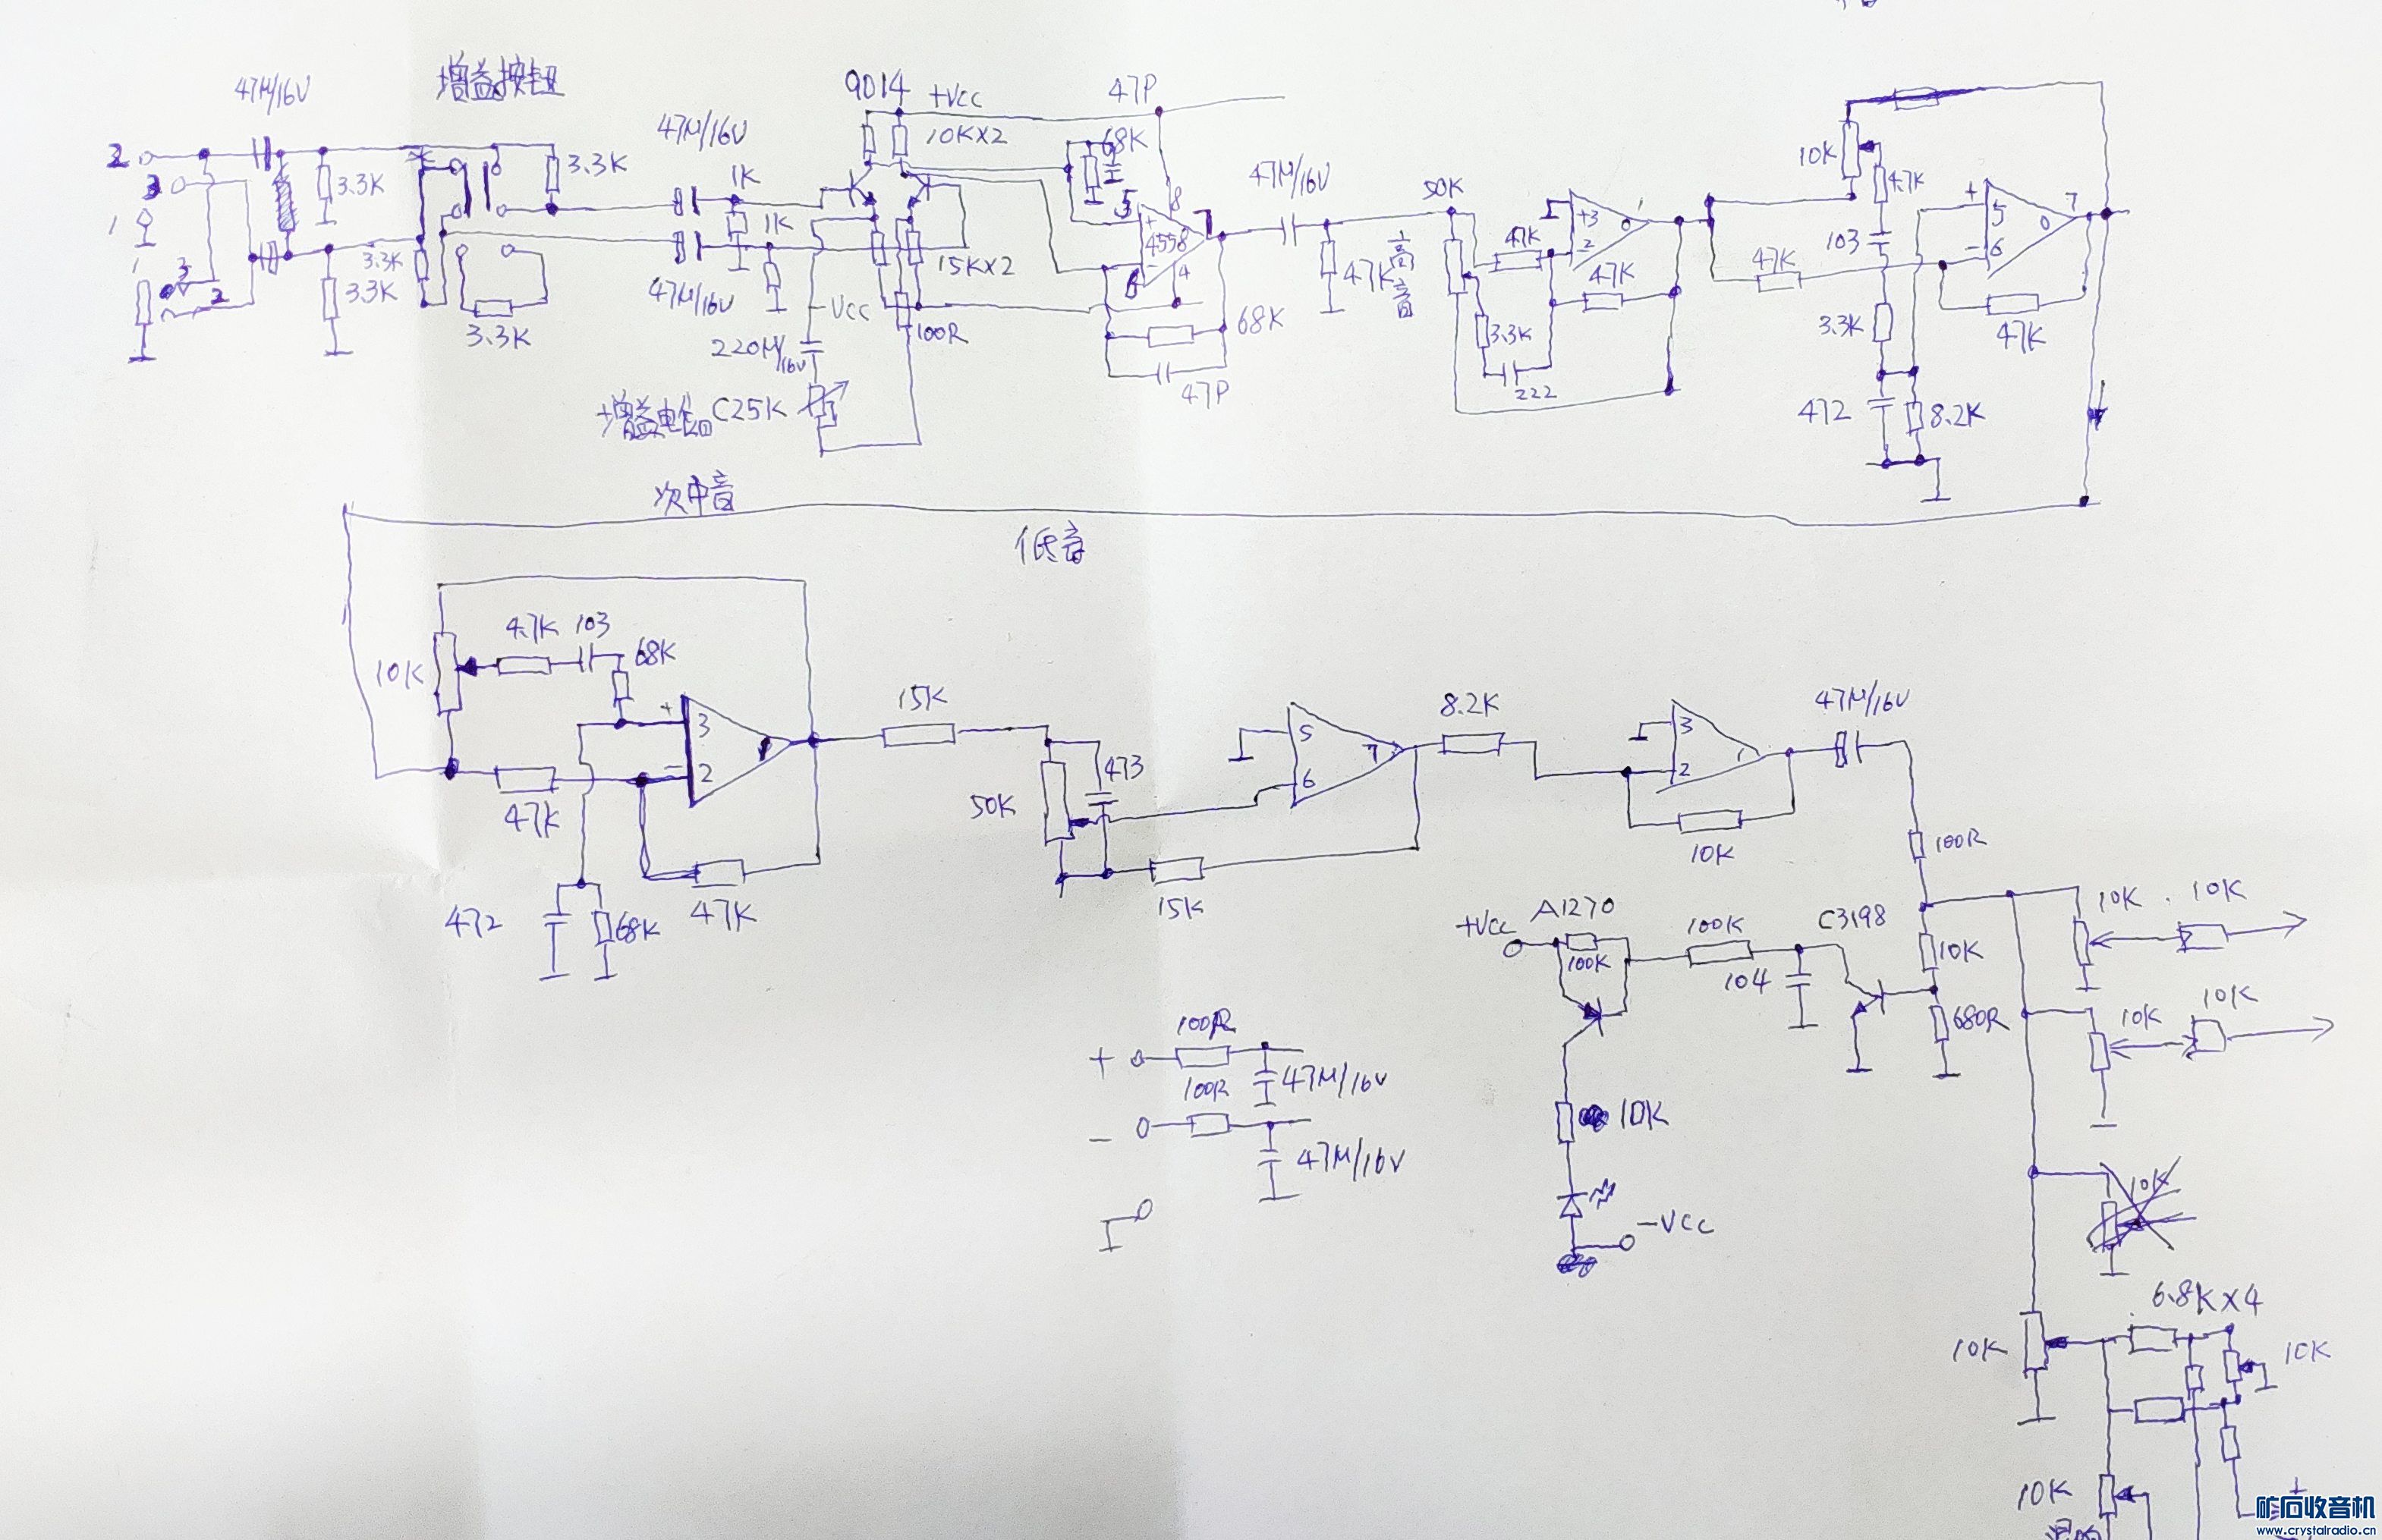 47M/16V
增益按钮
9014
+VCC
47P
2
3.3K
3.3K
47M/16V
1K
10KX2
68K
47M/16V
50K
10K
4.7K
3
1
1K
5
8
7
4558
4
6
47K
高音
47K
+3
-2
1
47K
47K
103
+
5
-
6
0
7
1
3
2
3.3K
3.3K
3.3K
47M/16V
-VCC
15KX2
100R
220M/16V
68K
47P
3.3K
222
3.3K
47K
增益电位 C25K
472
8.2K
次中音
低音
4.7K
103
68K
10K
+
3
-
2
47K
47K
472
68K
15K
50K
473
15K
5
6
7
8.2K
3
2
1
10K
47M/16V
100R
+VCC
A1270
100K
100K
C3198
104
10K
680R
10K
10K
10K
10K
100R
+
47M/16V
100R
-
47M/16V
10K
-VCC
10K
6.8KX4
10K
10K
10K
+
矿石收音机
www.crystalradio.cn